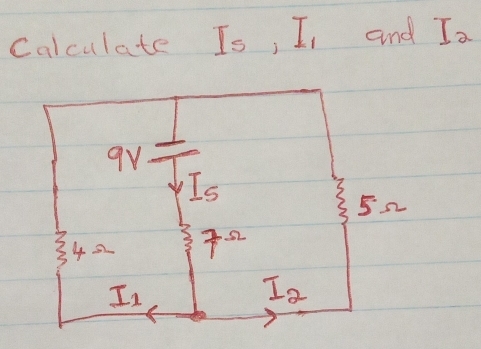 Calculate Is, I₁ and I₂
9V
Is
5Ω
7Ω
4Ω
I₁
I₂